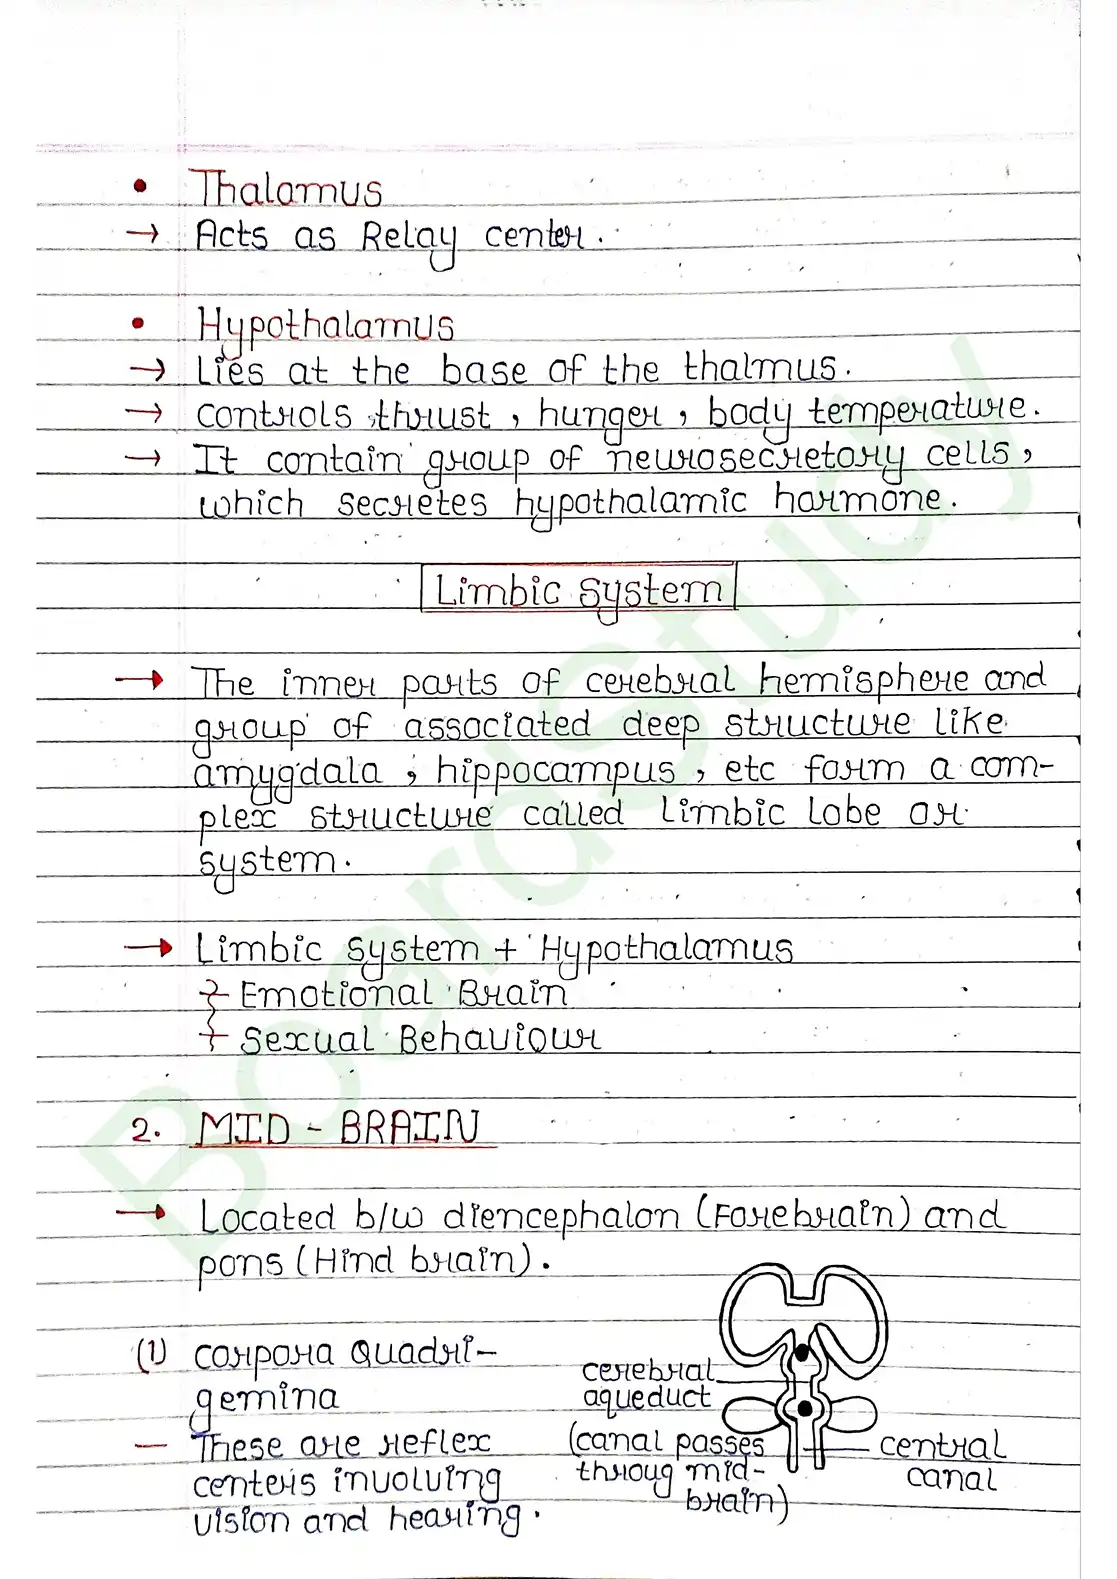 • Thalamus
→ Acts as Relay center.
• Hypothalamus
→ Lies at the base of the thalmus.
→ controls thrust, hunger, body temperature.
→ It contain group of neurosecretory cells,
which secretes hypothalamic harmone.
Limbic System
→ The inner parts of cerebral hemisphere and
group of associated deep structure like
amygdala, hippocampus, etc form a com-
plex structure called limbic lobe or
system.
→ Limbic system + Hypothalamus
Emotional Brain
Sexual Behaviour
2. MID - BRAIN
→ Located b/w diencephalon (Forebrain) and
pons (Hind brain).
(1) corpora Quadri-
gemina
— These are reflex
centers involving
vision and hearing.
cerebral
aqueduct
(canal passes
throug mid-
brain)
central
canal
BoardStudy